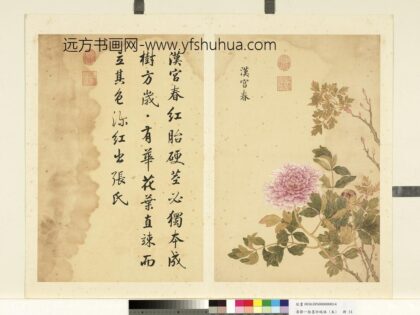 远方书画网-www.yfshuhua.com
漢宮春
漢宮春紅胎硬莖必獨本成
樹方歲有華花葉直竦而
立其色深紅出張氏